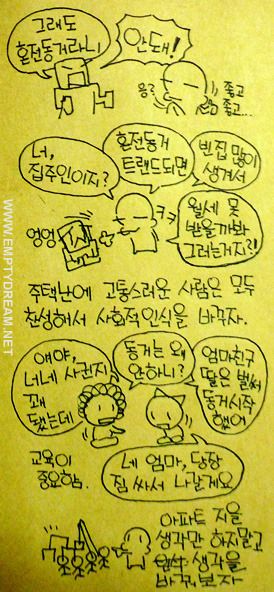 그래도
혼전동거라니
안돼!
응?
좋고
좋고...
너,
집주인이지?
혼전동거
트랜드되면
빈집 많이
생겨서
월세 못
받을까봐
그러는거지?!
ㅋㅋ
엉엉
주택난에 고통스러운 사람은 모두
찬성해서 사회적인식을 바꾸자.
얘야,
너네 사귄지
꽤
됐는데
동거는 왜
안하니?
엄마친구
딸은 벌써
동거시작
했어
네 엄마, 당장
짐 싸서 나갈게요
교육이
중요함.
아파트 지을
생각만 하지말고
생각을
바꿔보자
WWW.EMPTYDREAM.NET